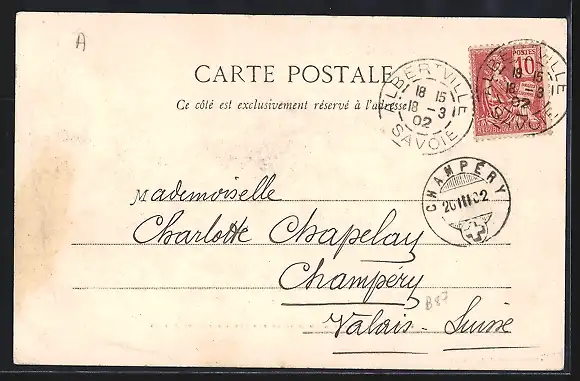 A
CARTE POSTALE
Ce côté est exclusivement réservé à l'adresse
ALBERTVILLE
18 15
18 -3
02
SAVOIE
POSTES
10
ALBERTVILLE
18 15
18 -3
02
SAVOIE
CHAMPÉRY
20 III 02
Mademoiselle
Charlotte Chapelay
Champéry
B87
Valais - Suisse